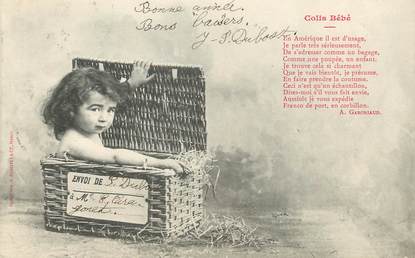 Bonne année
Bons baisers,
J-S. Dubost
Colis Bébé
En Amérique il est d'usage,
Je parle très sérieusement,
De s'adresser comme un bagage,
Comme une poupée, un enfant.
Je trouve cela si charmant
Que je vais bientôt, je présume,
En faire prendre la coutume.
Ceci n'est qu'un échantillon,
Dites-moi s'il vous fait envie,
Aussitôt je vous expédie
Franco de port, en corbillon.
A. GABORIAUD.
ENVOI DE
à M